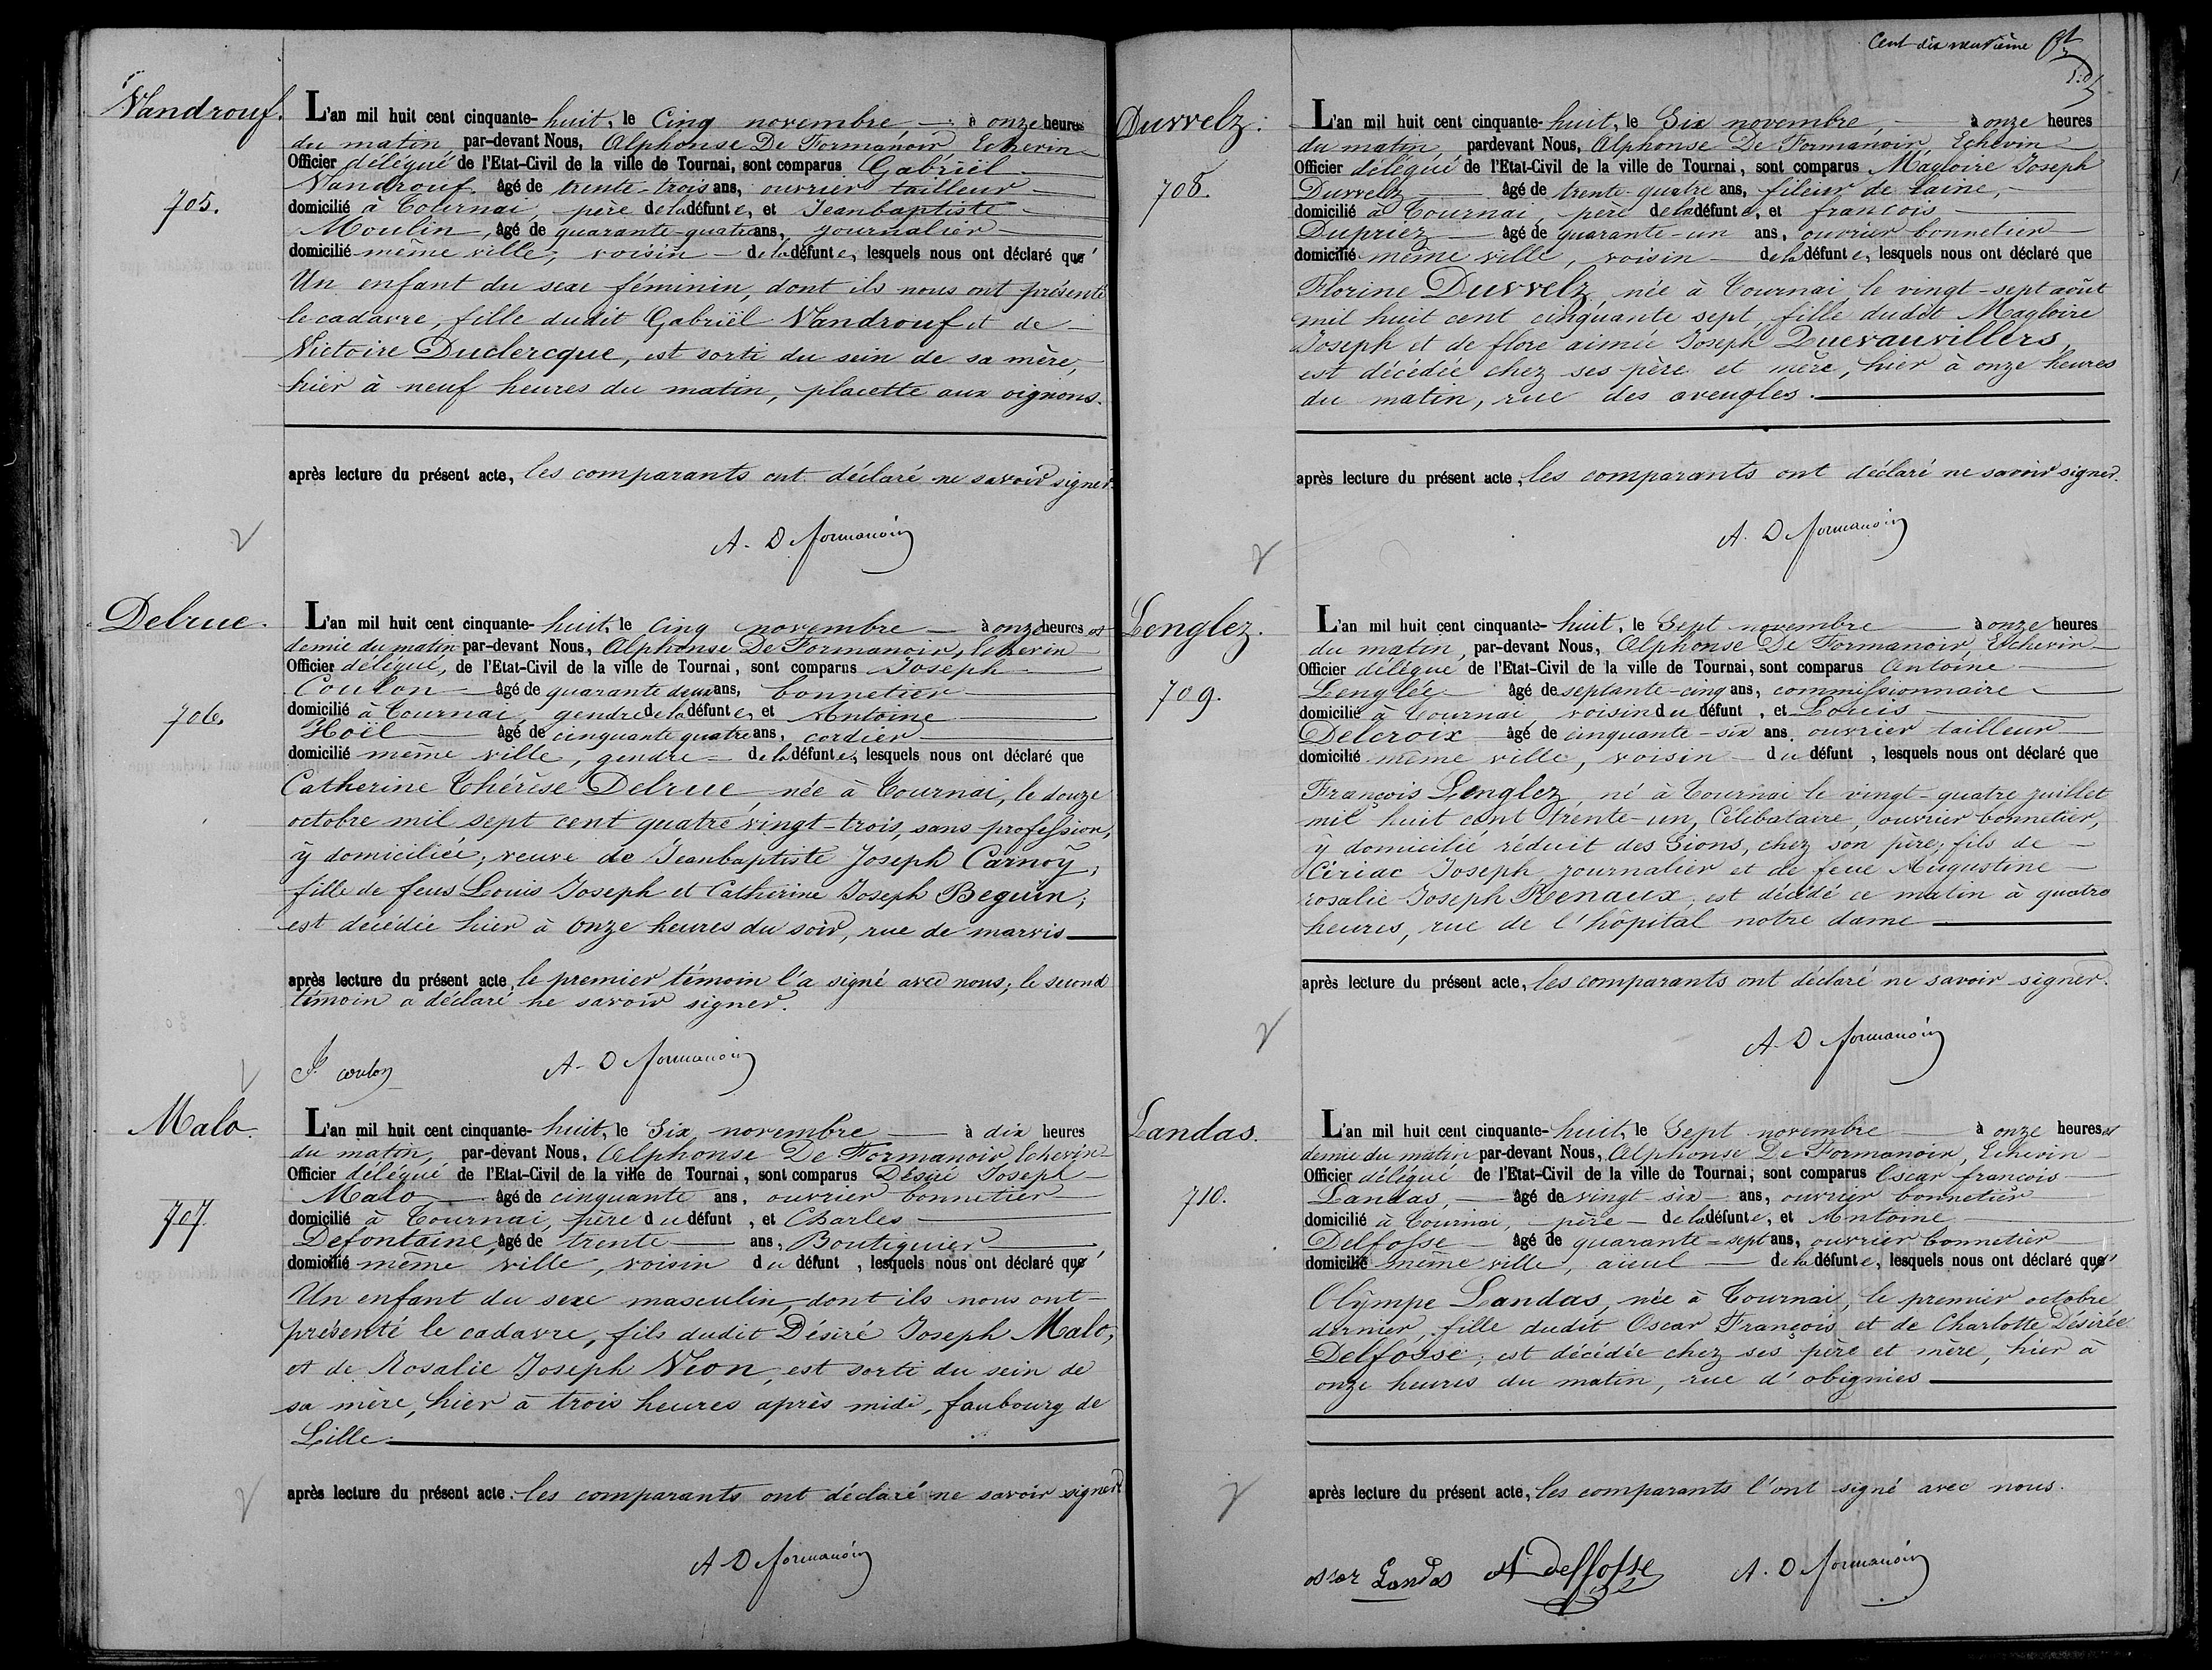 Vandrouf.
705.
L'an mil huit cent cinquante-huit, le Cinq novembre, à onze heures
du matin, par-devant Nous, Alphonse De Formanoir, Echevin
Officier délégué de l'Etat-Civil de la ville de Tournai, sont comparus Gabriël
Vandrouf âgé de trente-trois ans, ouvrier tailleur
domicilié à Tournai, père de la défunte, et Jeanbaptiste
Moulin, âgé de quarante-quatre ans, journalier
domicilié même ville, voisin de la défunte, lesquels nous ont déclaré qu'
Un enfant du sexe féminin, dont ils nous ont présenté
le cadavre, fille dudit Gabriël Vandrouf et de
Victoire Duclercque, est sorti du sein de sa mère,
hier à neuf heures du matin, placette aux oignons.
après lecture du présent acte, les comparants ont déclaré ne savoir signer.
A. D formanoir
Delrue.
706.
L'an mil huit cent cinquante-huit, le Cinq novembre à onze heures et
demie du matin par-devant Nous, Alphonse De Formanoir, Echevin
Officier délégué, de l'Etat-Civil de la ville de Tournai, sont comparus Joseph
Coulon âgé de quarante deux ans, bonnetier
domicilié à Tournai, gendre de la défunte, et Antoine
Hoël âgé de cinquante quatre ans, cordier
domicilié même ville, gendre de la défunte, lesquels nous ont déclaré que
Catherine Thérèse Delrue née à Tournai, le douze
octobre mil sept cent quatre vingt-trois, sans profession,
y domiciliée; veuve de Jeanbaptiste Joseph Carnoÿ;
fille de feus Louis Joseph et Catherine Joseph Beguin;
est décédée hier à onze heures du soir, rue de marvis
après lecture du présent acte, le premier témoin l'a signé avec nous; le second
témoin a déclaré ne savoir signer.
J. coulon A. D formanoir
Malo.
707.
L'an mil huit cent cinquante-huit, le Six novembre à dix heures
du matin, par-devant Nous, Alphonse De Formanoir Echevin
Officier délégué de l'Etat-Civil de la ville de Tournai, sont comparus Désiré Joseph
Malo âgé de cinquante ans, ouvrier bonnetier
domicilié à Tournai, père du défunt, et Charles
Defontaine, âgé de trente ans, Boutiquier
domicilié même ville, voisin du défunt, lesquels nous ont déclaré qu'
Un enfant du sexe masculin, dont ils nous ont
présenté le cadavre, fils dudit Désiré Joseph Malo,
et de Rosalie Joseph Vion, est sorti du sein de
sa mère, hier à trois heures après midi, faubourg de
Lille.
après lecture du présent acte. les comparants ont déclaré ne savoir signer
A D formanoir
Cent dix neuvième
Duvvelz.
708.
L'an mil huit cent cinquante-huit, le Six novembre, à onze heures
du matin, pardevant Nous, Alphonse De Formanoir, Echevin
Officier délégué de l'Etat-Civil de la ville de Tournai, sont comparus Magloire Joseph
Duvvelz âgé de trente-quatre ans, fileur de laine,
domicilié à Tournai, père de la défunte, et françois
Dupriez âgé de quarante-un ans, ouvrier bonnetier
domicilié même ville, voisin de la défunte, lesquels nous ont déclaré que
Florine Duvvelz, née à Tournai le vingt-sept août
mil huit cent cinquante sept, fille dudit Magloire
Joseph et de flore aimée Joseph Quevauvillers,
est décédée chez ses père et mère, hier à onze heures
du matin, rue des aveugles.
après lecture du présent acte, les comparants ont déclaré ne savoir signer.
A. D formanoir
Lenglez.
709.
L'an mil huit cent cinquante-huit, le Sept novembre à onze heures
du matin, par-devant Nous, Alphonse De Formanoir, Echevin
Officier délégué de l'Etat-Civil de la ville de Tournai, sont comparus Antoine
Lenglée âgé de septante-cinq ans, commissionnaire
domicilié à Tournai voisin du défunt, et Louis
Delcroix âgé de cinquante-six ans ouvrier tailleur
domicilié même ville, voisin du défunt, lesquels nous ont déclaré que
François Lenglez, né à Tournai le vingt-quatre juillet
mil huit cent trente-un, Célibataire, ouvrier bonnetier,
y domicilié réduit des Sions, chez son père; fils de
Ciriac Joseph, journalier et de feue Augustine
rosalie Joseph Renaux, est décédé ce matin à quatre
heures, rue de l'hôpital notre dame
après lecture du présent acte, les comparants ont déclaré ne savoir signer.
A. D formanoir
Landas.
710.
L'an mil huit cent cinquante-huit, le Sept novembre à onze heures et
demie du matin par-devant Nous, Alphonse De Formanoir, Echevin
Officier délégué de l'Etat-Civil de la ville de Tournai, sont comparus Oscar françois
Landas, âgé de vingt six ans, ouvrier bonnetier
domicilié à Tournai, père de la défunte, et Antoine
Delfosse âgé de quarante-sept ans, ouvrier bonnetier
domicilié même ville, aïeul de la défunte, lesquels nous ont déclaré que
Olÿmpe Landas, née à Tournai, le premier octobre
dernier, fille dudit Oscar François et de Charlotte Désirée
Delfosse; est décédée chez ses père et mère, hier à
onze heures du matin, rue d'obignies
après lecture du présent acte, les comparants l'ont signé avec nous.
oscar Landas A delfosse A. D formanoir